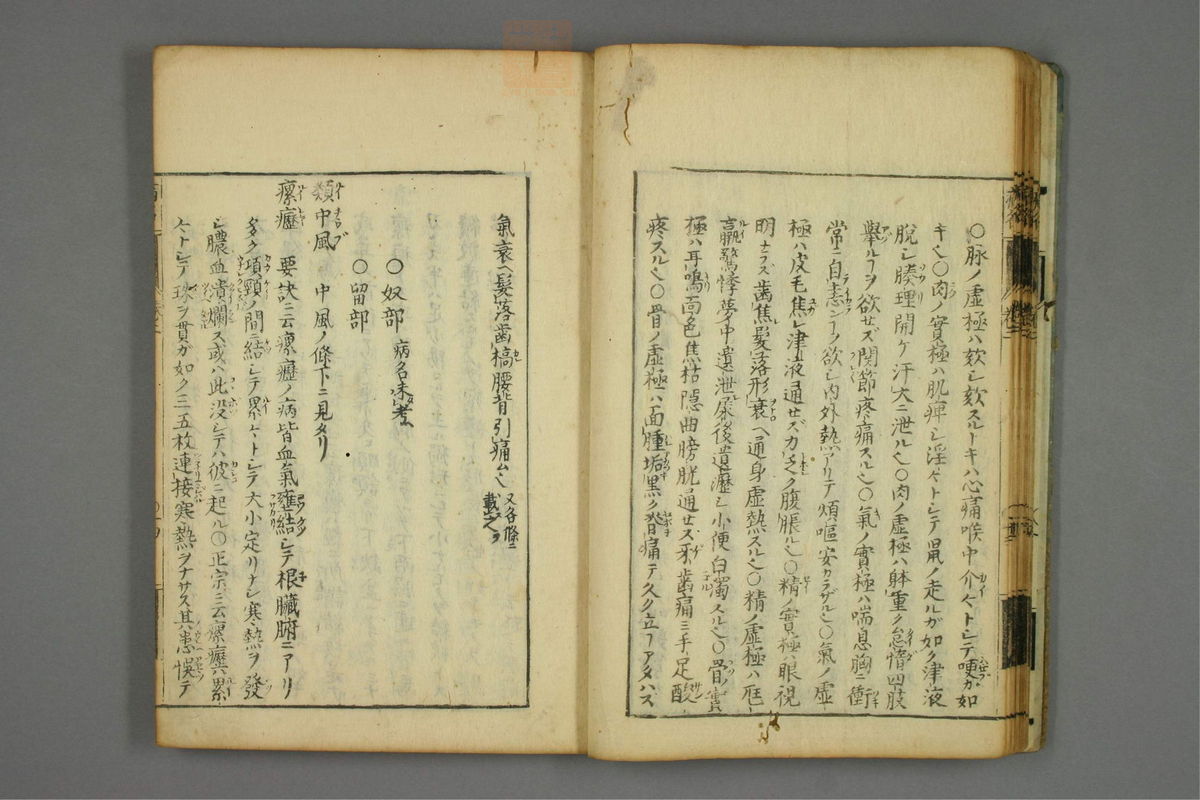 ○脉ノ虚極ハ欬シ欬スルトキハ心痛喉中介々トシテ哽ガ如
キ也○肉ノ實極ハ肌痺シ淫々トシテ鼠ノ走ルガ如ク津液
脱シ腠理開ケ汗大ニ泄ル也○肉ノ虚極ハ躰重ク怠惰四肢
擧ルヿヲ欲せズ関節疼痛スル也○氣ノ實極ハ喘息胸ニ衝
常ニ自恚ンヿヲ欲シ内外熱アリテ煩嘔安カラザル也○氣ノ虚
極ハ皮毛焦レ津液通せズ力乏ク腹脹ル也○精ノ實極ハ眼視
明ナラズ歯焦髪落形衰ヘ通身虚熱スル也○精ノ虚極ハ尫
羸驚悸夢中遺泄尿後遺瀝シ小便白濁スル也○骨ノ實
極ハ耳鳴面色焦枯隠曲膀胱通せズ牙歯痛ミ手足酸
疼スル也○骨ノ虚極ハ面腫垢黒ク脊痛テ久ク立ヿアタハズ
氣衰ヘ髪落歯槁腰背引痛ム也 又各條ニ載之
○奴部 病名未考
○留部
類中風 中風ノ條下ニ見タリ
瘰癧 要訣ニ云瘰癧ノ病皆血氣壅結シテ根臓腑ニアリ
多ク項頸ノ間ニ結シテ累々トシテ大小定リナシ寒熱ヲ發
シ膿血潰爛ス或ハ此没シテハ彼ニ起ル○正宗ニ云瘰癧ハ累
々トシテ珠ヲ貫ガ如ク三五枚連接寒熱ヲナサス其患慢テ